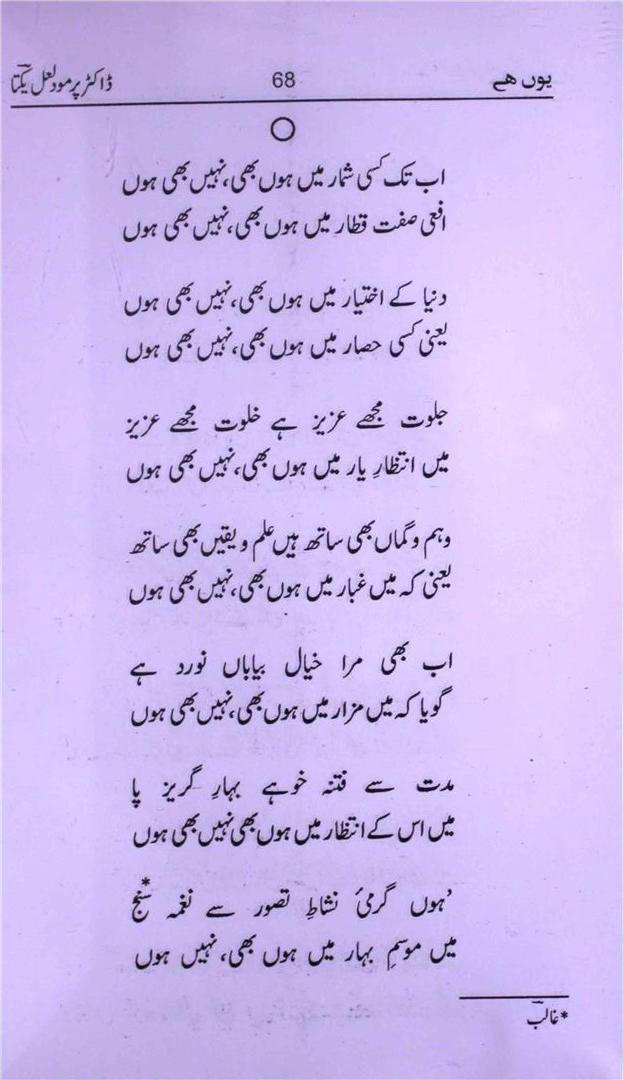 یوں ھے 68 ڈاکٹر پرمود لعل یکتا
اب تک کسی شمار میں ہوں بھی، نہیں بھی ہوں
افعی صفت قطار میں ہوں بھی، نہیں بھی ہوں
دنیا کے اختیار میں ہوں بھی، نہیں بھی ہوں
یعنی کسی حصار میں ہوں بھی، نہیں بھی ہوں
جلوت مجھے عزیز ہے خلوت مجھے عزیز
میں انتظارِ یار میں ہوں بھی، نہیں بھی ہوں
وہم و گماں بھی ساتھ ہیں علم و یقیں بھی ساتھ
یعنی کہ میں غبار میں ہوں بھی، نہیں بھی ہوں
اب بھی مرا خیال بیاباں نورد ہے
گویا کہ میں مزار میں ہوں بھی، نہیں بھی ہوں
مدت سے فتنہ خو ہے بہارِ گریز پا
میں اس کے انتظار میں ہوں بھی نہیں بھی ہوں
'ہوں گرمیٔ نشاطِ تصور سے نغمہ سنج*
میں موسمِ بہار میں ہوں بھی، نہیں ہوں
*غالبؔ